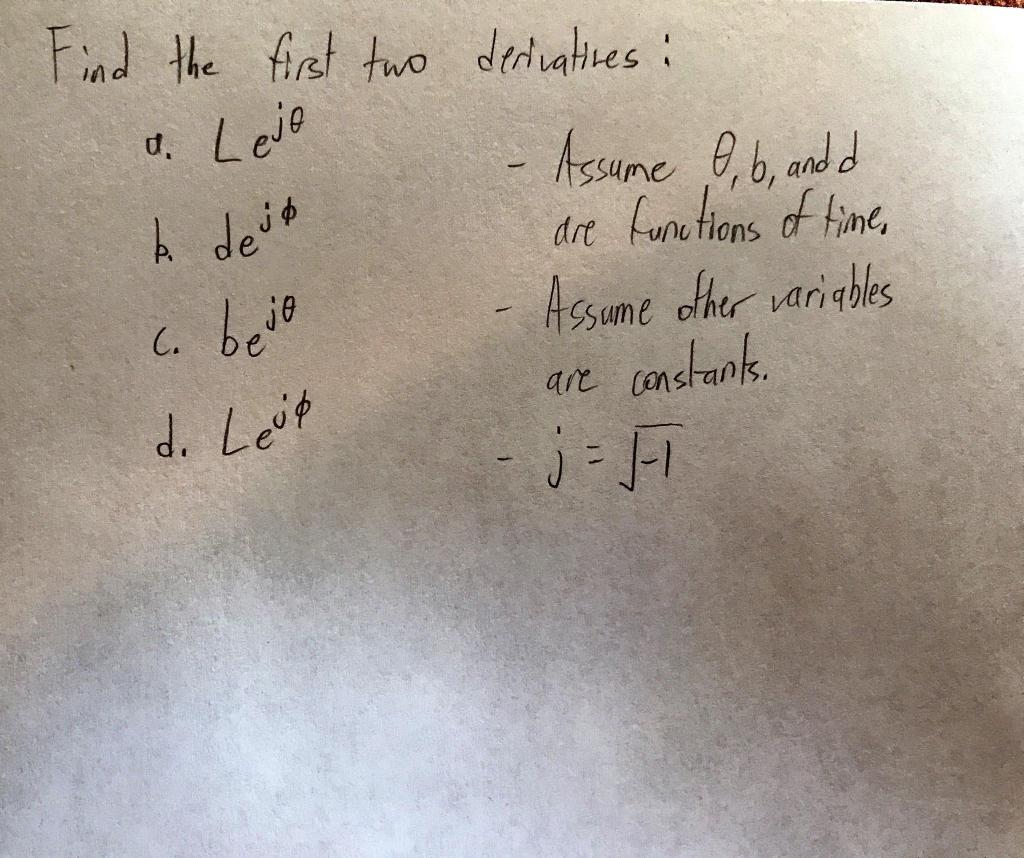 Find the first two derivatives:
a. Le^{jθ}
b. de^{jϕ}
c. be^{jθ}
d. Le^{jϕ}
- Assume θ, b, and d
are functions of time.
- Assume other variables
are constants.
- j = √-1